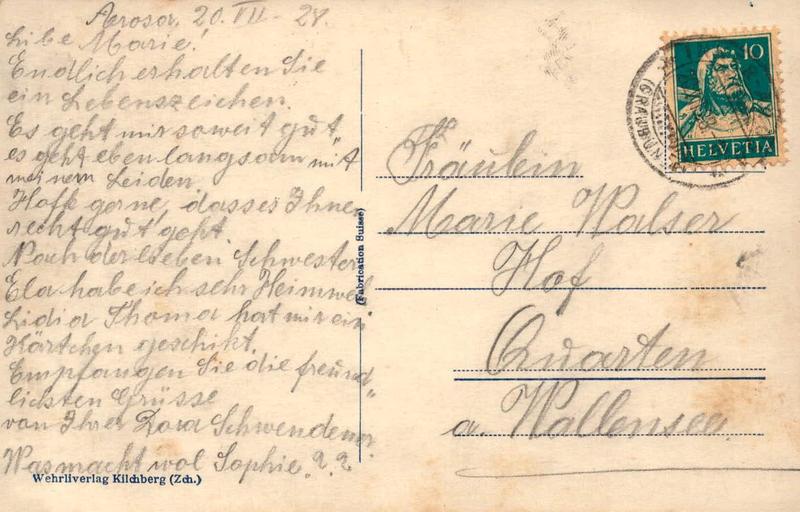 Arosa, 20. VII - 28.
Libe Marie!
Endlich erhalten Sie
ein Lebenszeichen.
Es geht mir soweit gut,
es geht eben langsam mit
meinem Leiden.
Hoffe gerne, dass es Ihnen
recht gut geht.
Nach der lieben Schwester
Ela habe ich sehr Heimweh
Lidia Thoma hat mir ein
Kärtchen geschikt.
Empfangen Sie die freund„
lichsten Grüsse
von Ihrer Dora Schwendener
Was macht wol Sophie ? ?
Wehrliverlag Kilchberg (Zch.)
(Fabrication Suisse)
10
HELVETIA
(GRAUB
Fräulein
Marie Walser
Hof
Quarten
a. Wallensee